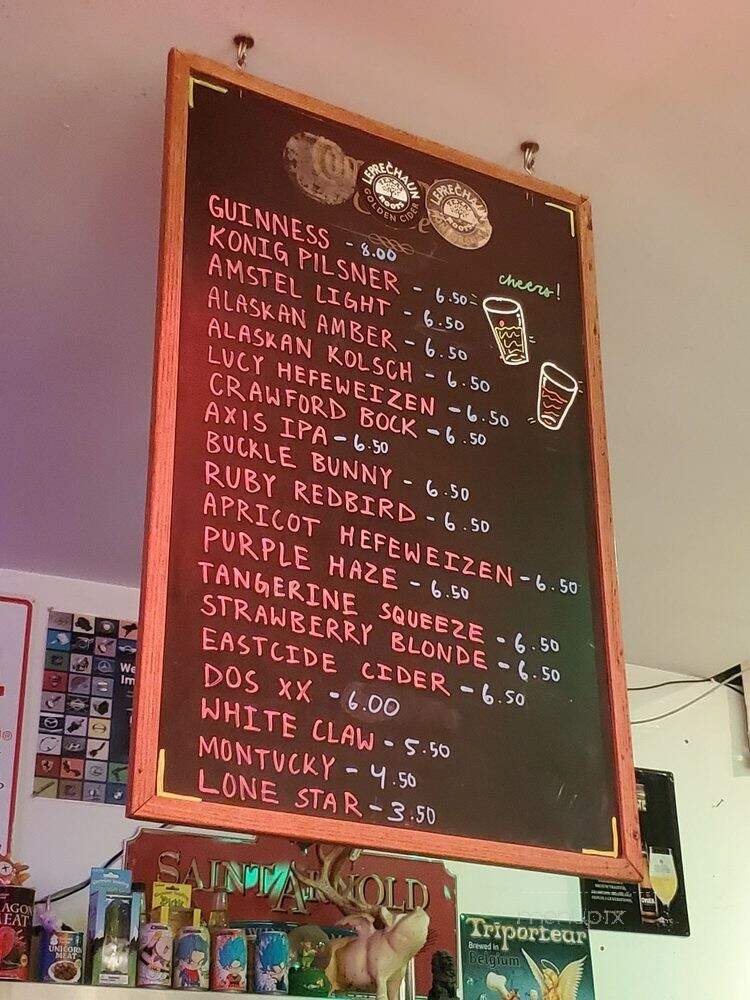 LEPRECHAUN
GOLDEN CIDER
LEPRECHAUN
GUINNESS - 8.00
KONIG PILSNER - 6.50
AMSTEL LIGHT - 6.50
ALASKAN AMBER - 6.50
ALASKAN KOLSCH - 6.50
LUCY HEFEWEIZEN - 6.50
CRAWFORD BOCK - 6.50
AXIS IPA - 6.50
BUCKLE BUNNY - 6.50
RUBY REDBIRD - 6.50
APRICOT HEFEWEIZEN - 6.50
PURPLE HAZE - 6.50
TANGERINE SQUEEZE - 6.50
STRAWBERRY BLONDE - 6.50
EASTCIDE CIDER - 6.50
DOS XX - 6.00
WHITE CLAW - 5.50
MONTUCKY - 4.50
LONE STAR - 3.50
cheers!
We
Im
SAINT ARNOLD
MEAT
UNICORN
MEAT
Triporteur
Brewed in
Belgium
menupix